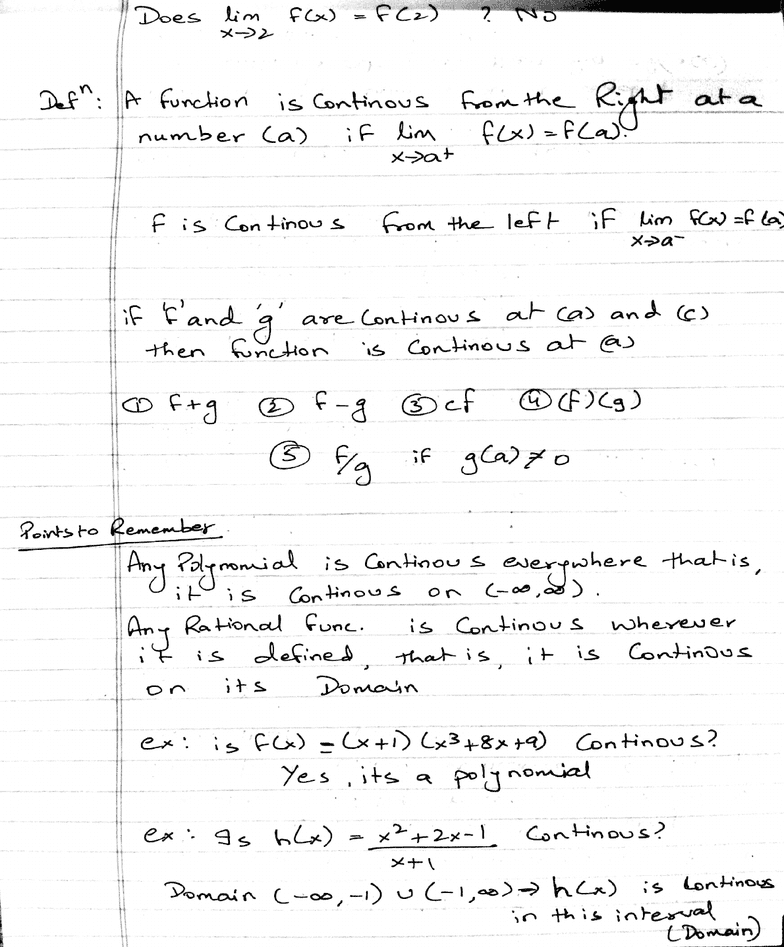 Does lim f(x) = f(2) ? No
x→2
Defⁿ: A function is Continous from the Right at a
number (a) if lim f(x) = f(a).
x→a+
f is Continous from the left if lim f(x) = f(a)
x→a⁻
if 'f' and 'g' are Continous at (a) and (c)
then function is Continous at (a)
① f+g ② f-g ③ cf ④ (f)(g)
⑤ f/g if g(a) ≠ 0
Points to Remember
Any Polynomial is Continous everywhere that is,
it is Continous on (-∞,∞).
Any Rational func. is Continous wherever
it is defined, that is, it is Continous
on its Domain
ex: is f(x) = (x+1) (x³+8x+9) Continous?
Yes, its a polynomial
ex: Is h(x) = x²+2x-1 Continous?
x+1
Domain (-∞,-1) ∪ (-1,∞) → h(x) is Continous
in this interval
(Domain)